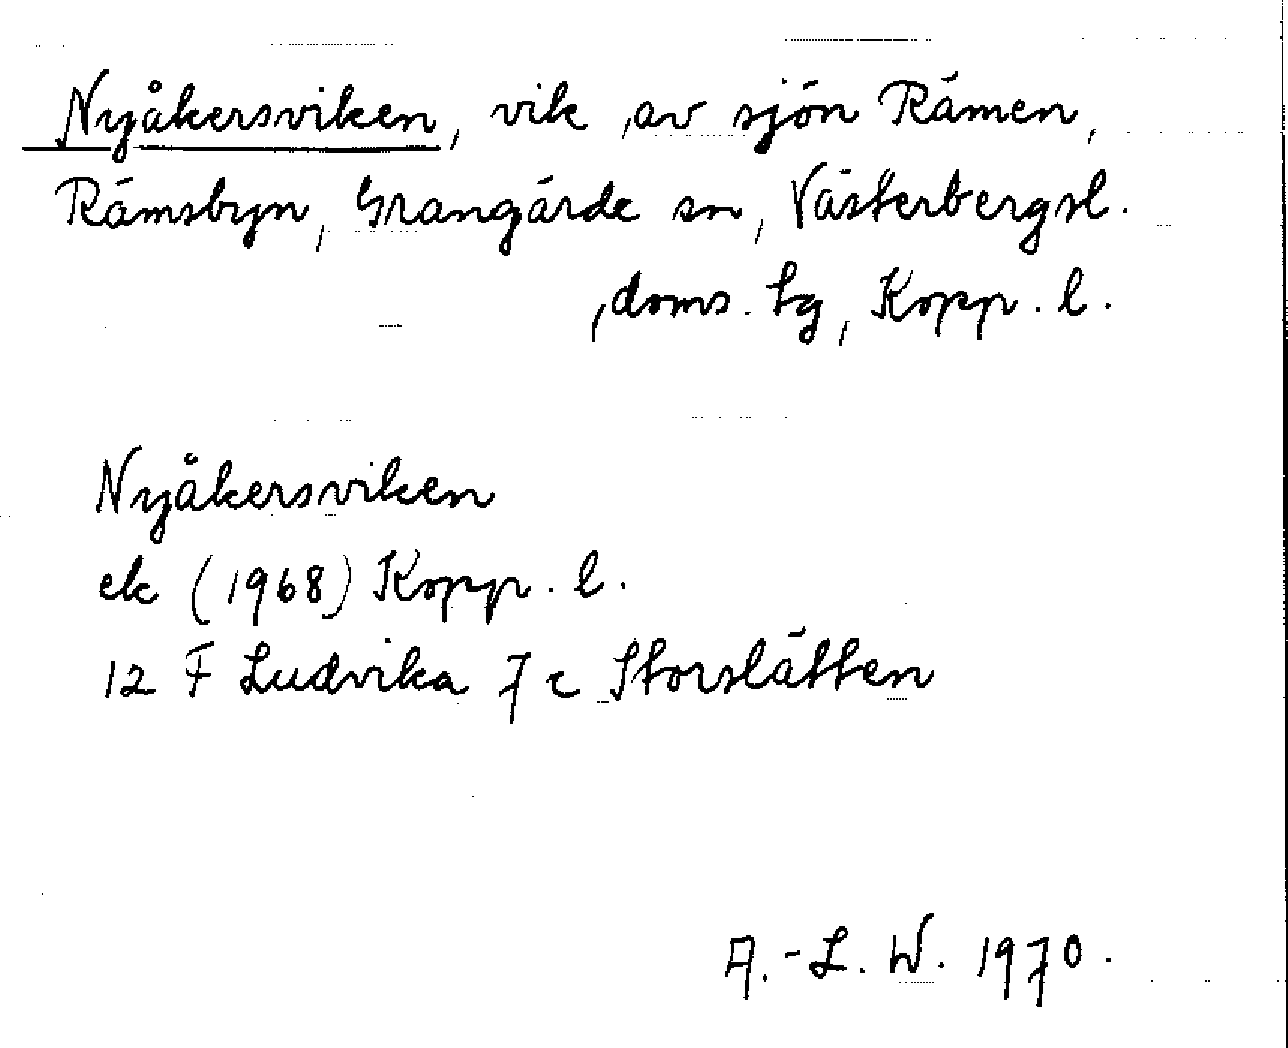 Nyåkersviken, vik av sjön Rämen,
Rämsbyn, Grangärde sn, Västerbergsl.
doms. tg, Kopp. l.
Nyåkersviken
ek (1968) Kopp. l.
12 F Ludvika 7 c Storslätten
A.-L. W. 1970.